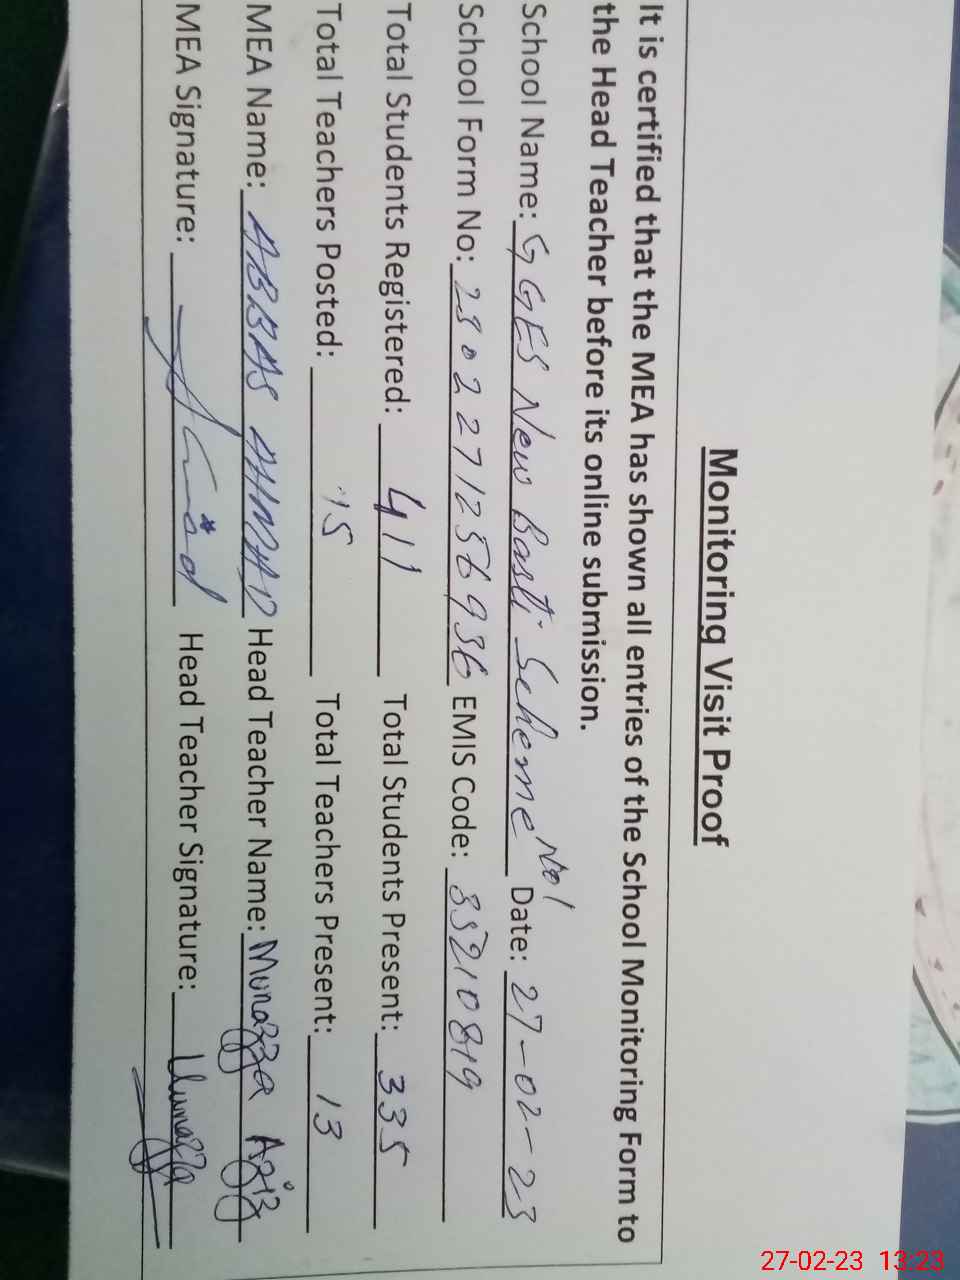 Monitoring Visit Proof
It is certified that the MEA has shown all entries of the School Monitoring Form to
the Head Teacher before its online submission.
School Name: GGES New Basti Scheme No1 Date: 27-02-23
School Form No: 2302271256936 EMIS Code: 35210819
Total Students Registered: 411 Total Students Present: 335
Total Teachers Posted: 15 Total Teachers Present: 13
MEA Name: ABBAS AHMAD Head Teacher Name: Munazza Aziz
MEA Signature: Head Teacher Signature: Munazza
27-02-23 13:23